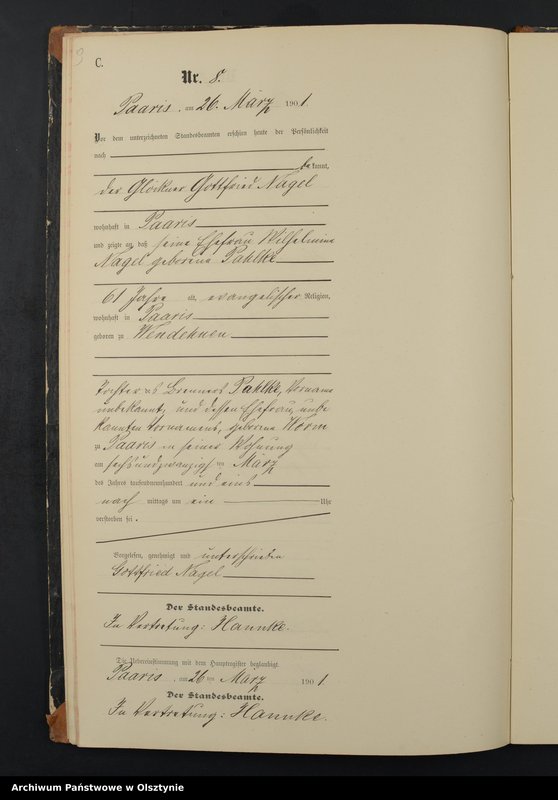 C.
Nr. 8.
Paaris, am 26. März 1901.
Vor dem unterzeichneten Standesbeamten erschien heute der Persönlichkeit
nach
bekannt,
der Glöckner Gottfried Nagel
wohnhaft in Paaris
und zeigte an, daß seine Ehefrau Wilhelmine
Nagel geborene Pahlke
61 Jahre alt, evangelischer Religion,
wohnhaft in Paaris
geboren zu Wendehnen
Tochter des Brenners Pahlke, Vorname
unbekannt, und dessen Ehefrau, unbe
kannten Vornamens, geborene Worm
zu Paaris in seiner Wohnung
am sechsundzwanzigsten März
des Jahres tausendneunhundert und eins
nach mittags um ein Uhr
verstorben sei.
Vorgelesen, genehmigt und unterschrieben
Gottfried Nagel
Der Standesbeamte.
In Vertretung: Hannke.
Die Uebereinstimmung mit dem Hauptregister beglaubigt.
Paaris, am 26 ten März 1901.
Der Standesbeamte.
In Vertretung: Hannke.
Archiwum Państwowe w Olsztynie